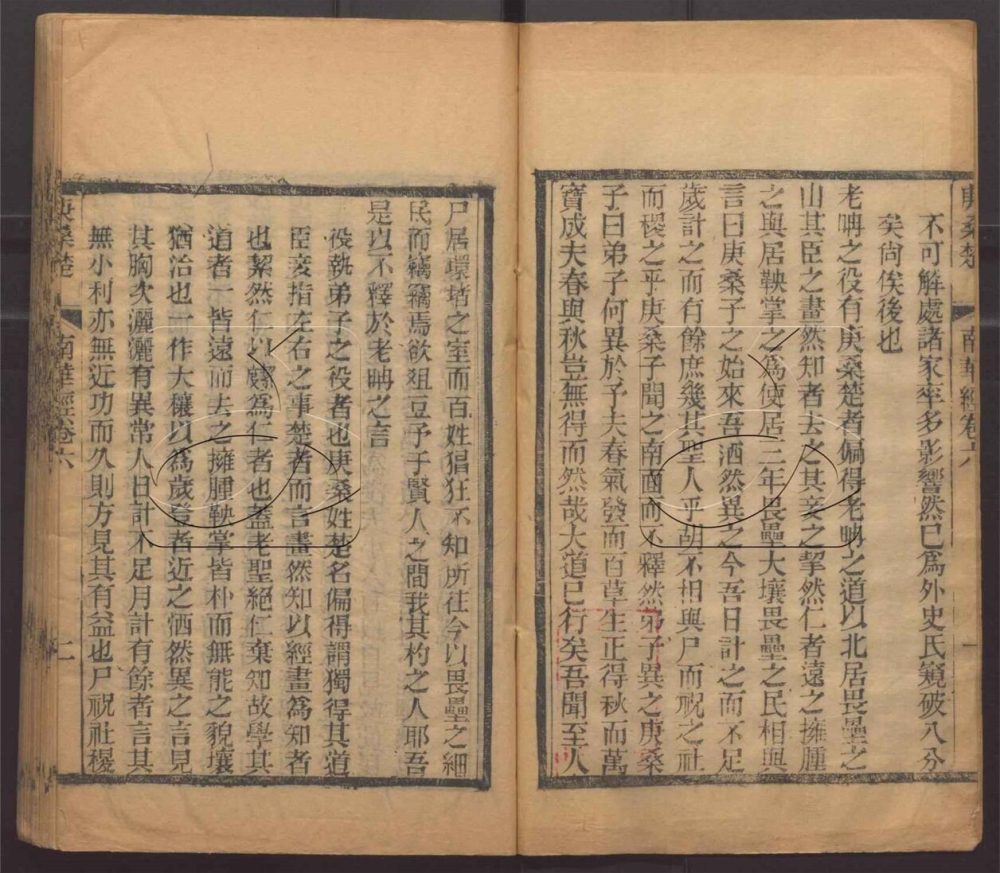 庚桑楚 南華經卷六 一
不可解處諸家率多影響然已為外史氏窺破八分
矣尚俟後也
老聃之役有庚桑楚者偏得老聃之道以北居畏壘之
山其臣之畫然知者去之其妾之挈然仁者遠之擁腫
之與居鞅掌之為使居三年畏壘大壤畏壘之民相與
言曰庚桑子之始來吾洒然異之今吾日計之而不足
歲計之而有餘庶幾其聖人乎胡不相與尸而祝之社
而稷之乎庚桑子聞之南面而不釋然弟子異之庚桑
子曰弟子何異於予夫春氣發而百草生正得秋而萬
寶成夫春與秋豈無得而然哉大道已行矣吾聞至人
尸居環堵之室而百姓猖狂不知所往今以畏壘之細
民而竊竊焉欲俎豆予于賢人之間我其杓之人耶吾
是以不釋於老聃之言
役執弟子之役者也庚桑姓楚名偏得謂獨得其道
臣妾指左右之事楚者而言畫然知以經畫為知者
也絜然仁以 為仁者也蓋老聖絕仁棄知故學其
道者一皆遠而去之擁腫鞅掌皆朴而無能之貌壤
猶治也一作大穰以為歲登者近之洒然異之言見
其胸次灑灑有異常人日計不足月計有餘者言其
無小利亦無近功而久則方見其有益也尸祝社稷
庚桑楚 南華經卷六 二